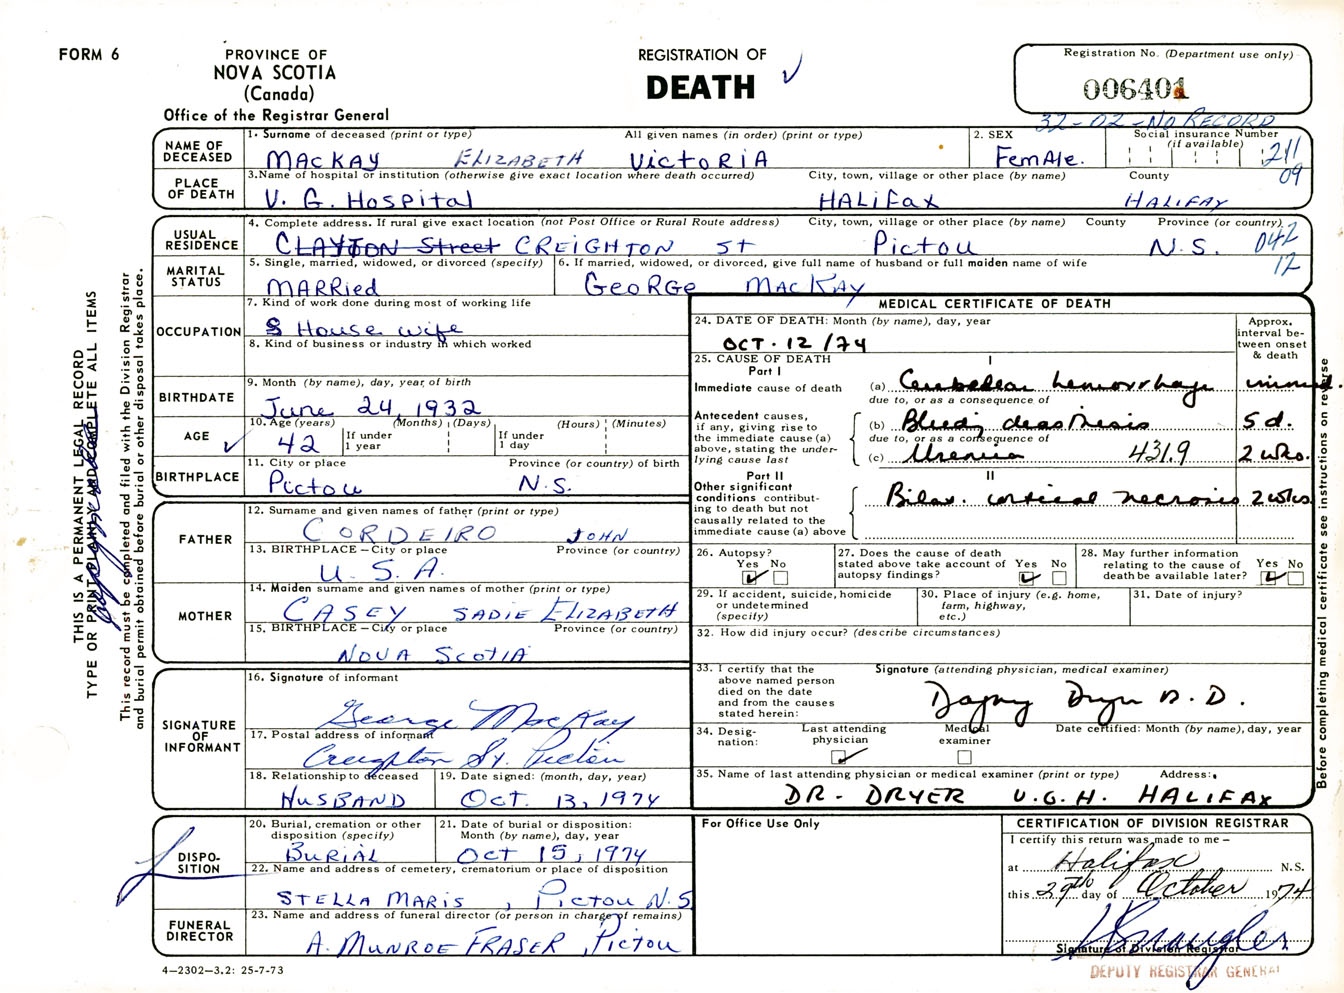 FORM 6
PROVINCE OF
NOVA SCOTIA
(Canada)
Office of the Registrar General
REGISTRATION OF
DEATH
Registration No. (Department use only)
006401
32-02-No RECORD
NAME OF DECEASED
1. Surname of deceased (print or type) All given names (in order) (print or type)
MACKAY ELIZABETH VICTORIA
2. SEX
FemAle.
Social insurance Number
(if available)
211
09
PLACE OF DEATH
3. Name of hospital or institution (otherwise give exact location where death occurred) City, town, village or other place (by name) County
V. G. Hospital HALifax HALIFAX
USUAL RESIDENCE
4. Complete address. If rural give exact location (not Post Office or Rural Route address) City, town, village or other place (by name) County Province (or country)
CLAYTON Street CREIGHTON ST Pictou N.S.
042
12
MARITAL STATUS
5. Single, married, widowed, or divorced (specify)
MARRied
6. If married, widowed, or divorced, give full name of husband or full maiden name of wife
GeoRGe MACKAY
OCCUPATION
7. Kind of work done during most of working life
House wife
8. Kind of business or industry in which worked
BIRTHDATE
9. Month (by name), day, year of birth
June 24, 1932
AGE
10. Age (years) (Months) (Days) (Hours) (Minutes)
42 If under 1 year If under 1 day
BIRTHPLACE
11. City or place Province (or country) of birth
Pictou N.S.
FATHER
12. Surname and given names of father (print or type)
CORDEIRO JOHN
13. BIRTHPLACE – City or place Province (or country)
U. S. A.
MOTHER
14. Maiden surname and given names of mother (print or type)
CASEY SADIE ELIZABETH
15. BIRTHPLACE – City or place Province (or country)
NOVA SCOTIA
SIGNATURE OF INFORMANT
16. Signature of informant
George MacKay
17. Postal address of informant
Creighton St. Pictou
18. Relationship to deceased
HUSBAND
19. Date signed: (month, day, year)
Oct. 13, 1974
DISPOSITION
20. Burial, cremation or other disposition (specify)
BURIAL
21. Date of burial or disposition: Month (by name), day, year
Oct 15, 1974
22. Name and address of cemetery, crematorium or place of disposition
STELLA MARIS, Pictou N.S
FUNERAL DIRECTOR
23. Name and address of funeral director (or person in charge of remains)
A. MUNROE FRASER, Pictou
MEDICAL CERTIFICATE OF DEATH
24. DATE OF DEATH: Month (by name), day, year
OCT. 12/74
Approx. interval between onset & death
25. CAUSE OF DEATH
Part I
I
Immediate cause of death
(a) Cerebellar hemorrhage immed.
due to, or as a consequence of
Antecedent causes, if any, giving rise to the immediate cause (a) above, stating the underlying cause last
(b) Bleeding diasthesis 5 d.
due to, or as a consequence of
(c) Uremia 431.9 2 wks.
Part II
II
Other significant conditions contributing to death but not causally related to the immediate cause (a) above
Bilat. cortical necrosis 2 wks
26. Autopsy?
Yes No
27. Does the cause of death stated above take account of autopsy findings?
Yes No
28. May further information relating to the cause of death be available later?
Yes No
29. If accident, suicide, homicide or undetermined (specify)
30. Place of injury (e.g. home, farm, highway, etc.)
31. Date of injury?
32. How did injury occur? (describe circumstances)
33. I certify that the above named person died on the date and from the causes stated herein:
Signature (attending physician, medical examiner)
34. Designation:
Last attending physician
Medical examiner
Date certified: Month (by name), day, year
35. Name of last attending physician or medical examiner (print or type) Address:
DR. DRYER V.G.H. HALIFAX
For Office Use Only
CERTIFICATION OF DIVISION REGISTRAR
I certify this return was made to me –
at Halifax N.S.
this 29th day of October 1974
Signature of Division Registrar
DEPUTY REGISTRAR GENERAL
4–2302–3.2: 25-7-73
THIS IS A PERMANENT LEGAL RECORD
TYPE OR PRINT PLAINLY AND COMPLETE ALL ITEMS
This record must be completed and filed with the Division Registrar
and burial permit obtained before burial or other disposition takes place.
Before completing medical certificate see instructions on reverse